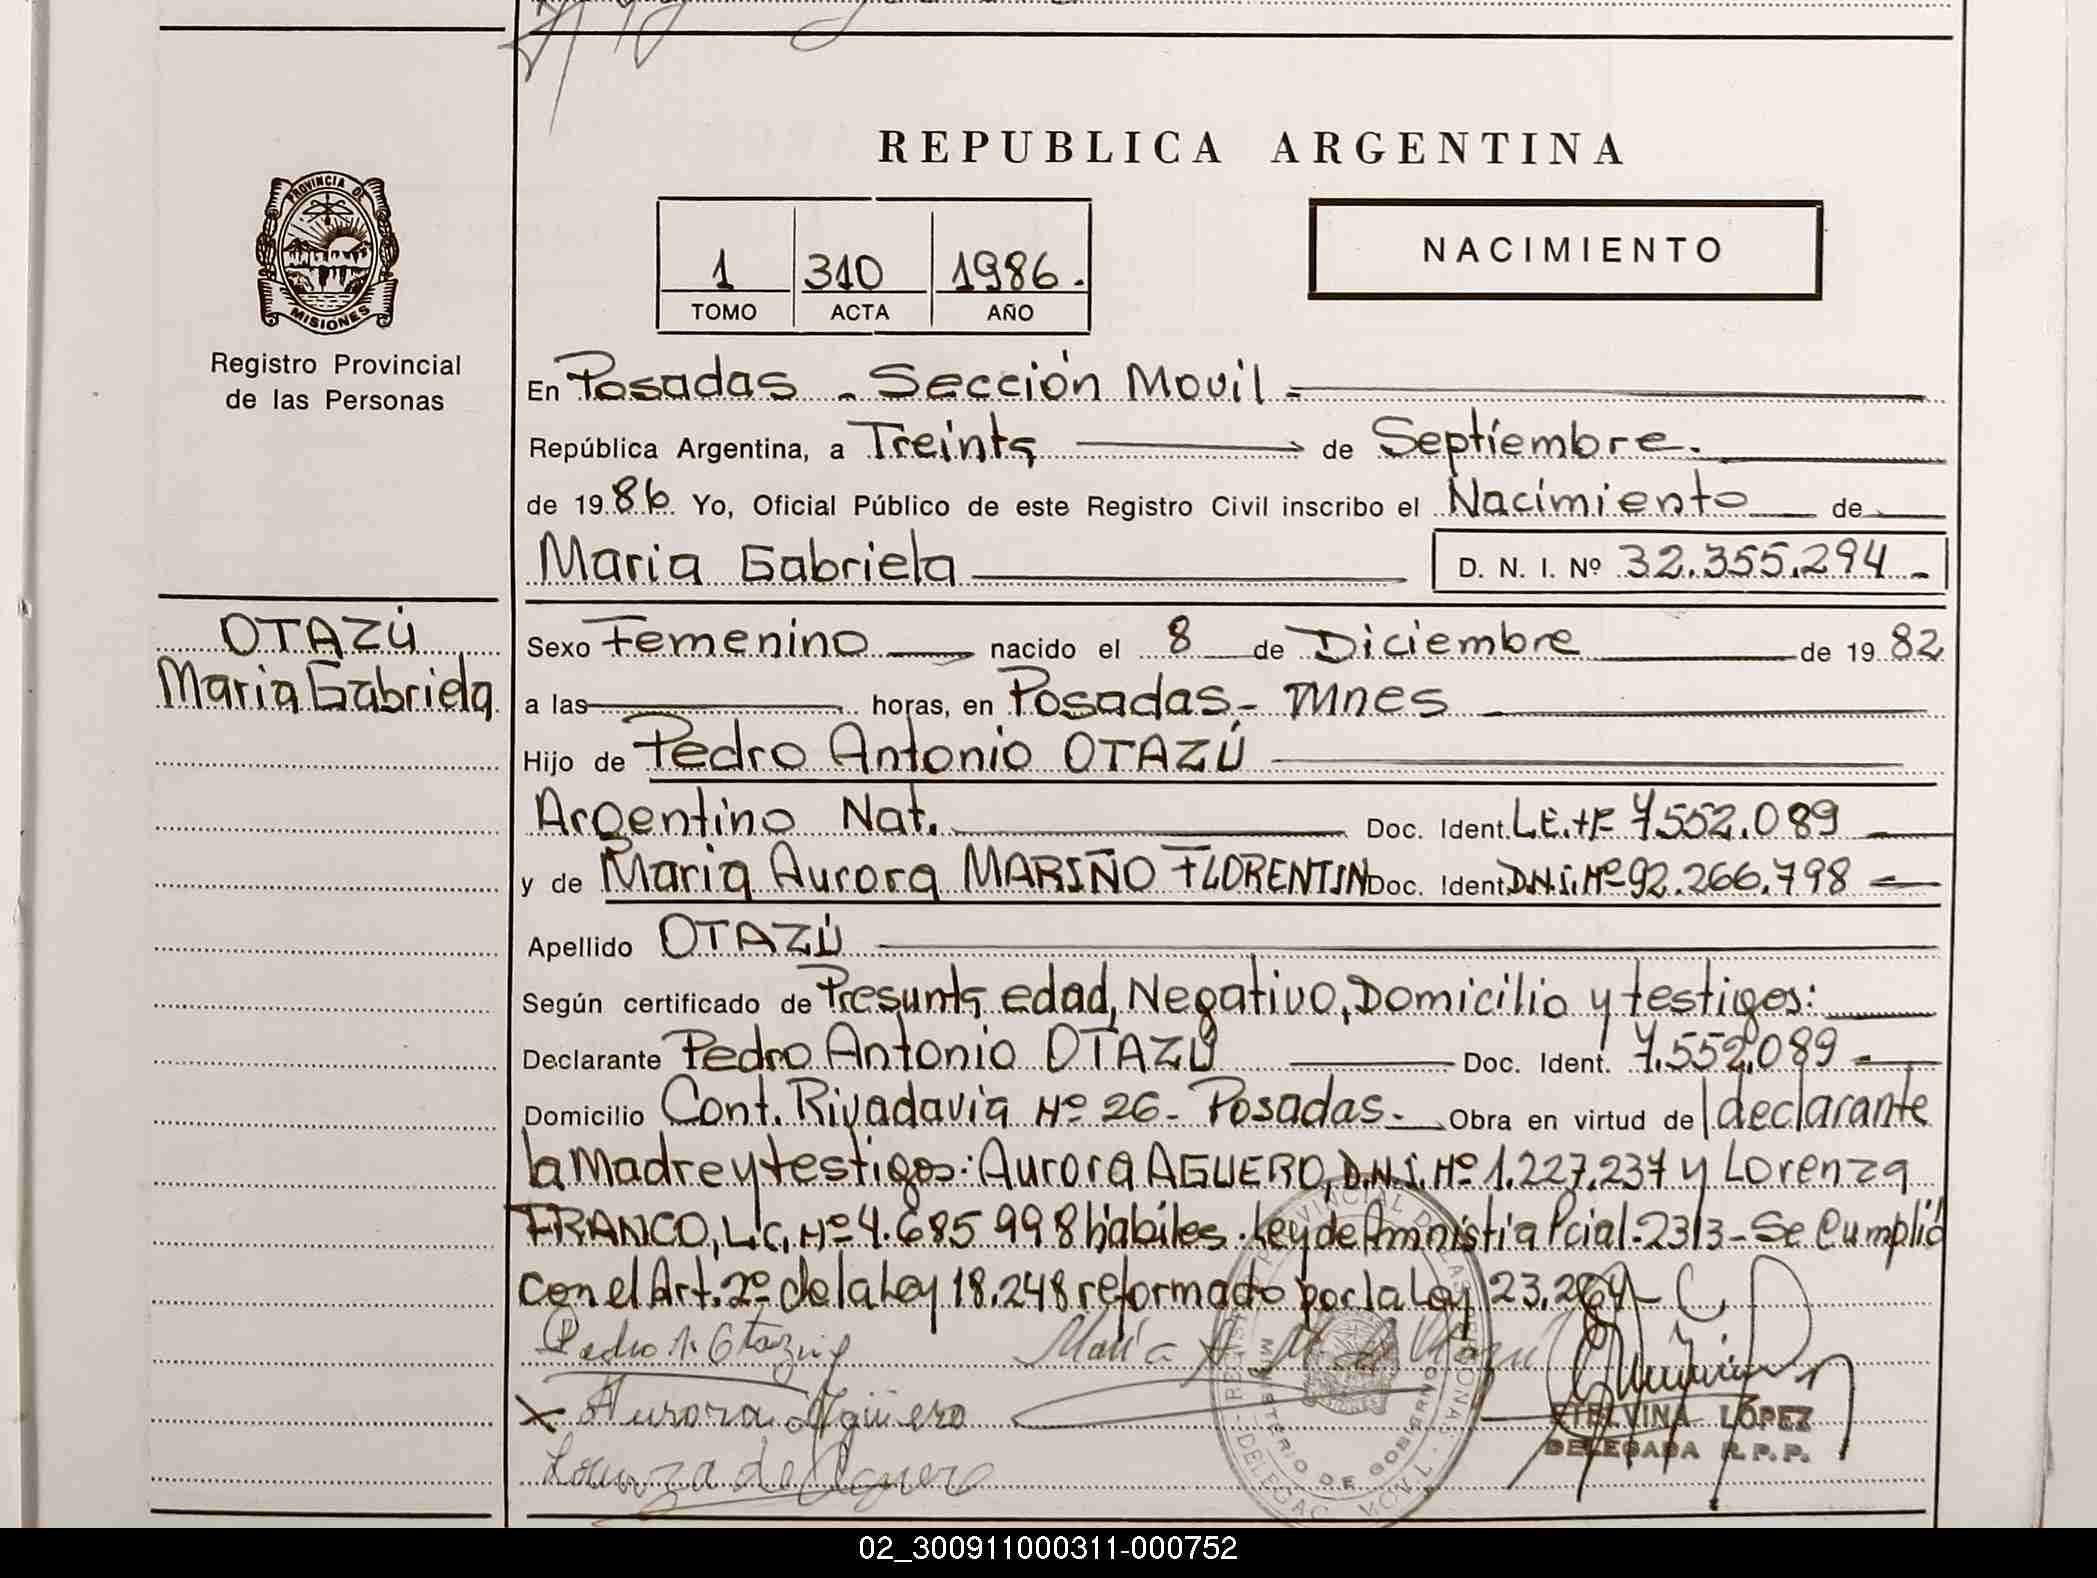 REPUBLICA ARGENTINA
PROVINCIA DE
MISIONES
Registro Provincial
de las Personas
1 310 1986.
TOMO ACTA AÑO
NACIMIENTO
En Posadas - Sección Movil
República Argentina, a Treinta de Septiembre.
de 1986. Yo, Oficial Público de este Registro Civil inscribo el Nacimiento de
Maria Gabriela D. N. I. Nº 32.355.294 -
OTAZÚ
Maria Gabriela
Sexo Femenino nacido el 8 de Diciembre de 1982
a las horas, en Posadas - Mnes
Hijo de Pedro Antonio OTAZÚ
Argentino Nat. Doc. Ident. L.E. Nº 7.552.089
y de Maria Aurora MARIÑO FLORENTIN Doc. Ident. D.N.I. Nº 92.266.798
Apellido OTAZÚ
Según certificado de Presunta edad, Negativo, Domicilio y testigos:
Declarante Pedro Antonio OTAZÚ Doc. Ident. 7.552.089
Domicilio Cont. Rivadavia Nº 26 - Posadas. - Obra en virtud de declarante
la Madre y testigos: Aurora AGUERO, D.N.I. Nº 1.227.237 y Lorenza
FRANCO, L.C. Nº 4.685.998 hábiles. Ley de Amnistia Pcial. 2313 - Se Cumplió
con el Art. 2º de la Ley 18.248 reformado por la Ley 23.264 -
Pedro A. Otazu
Maria
Aurora Agüero
Lorenza de Aguero
ETELVINA LÓPEZ
DELEGADA R.P.P.
MINISTERIO DE GOBIERNO
02_300911000311-000752